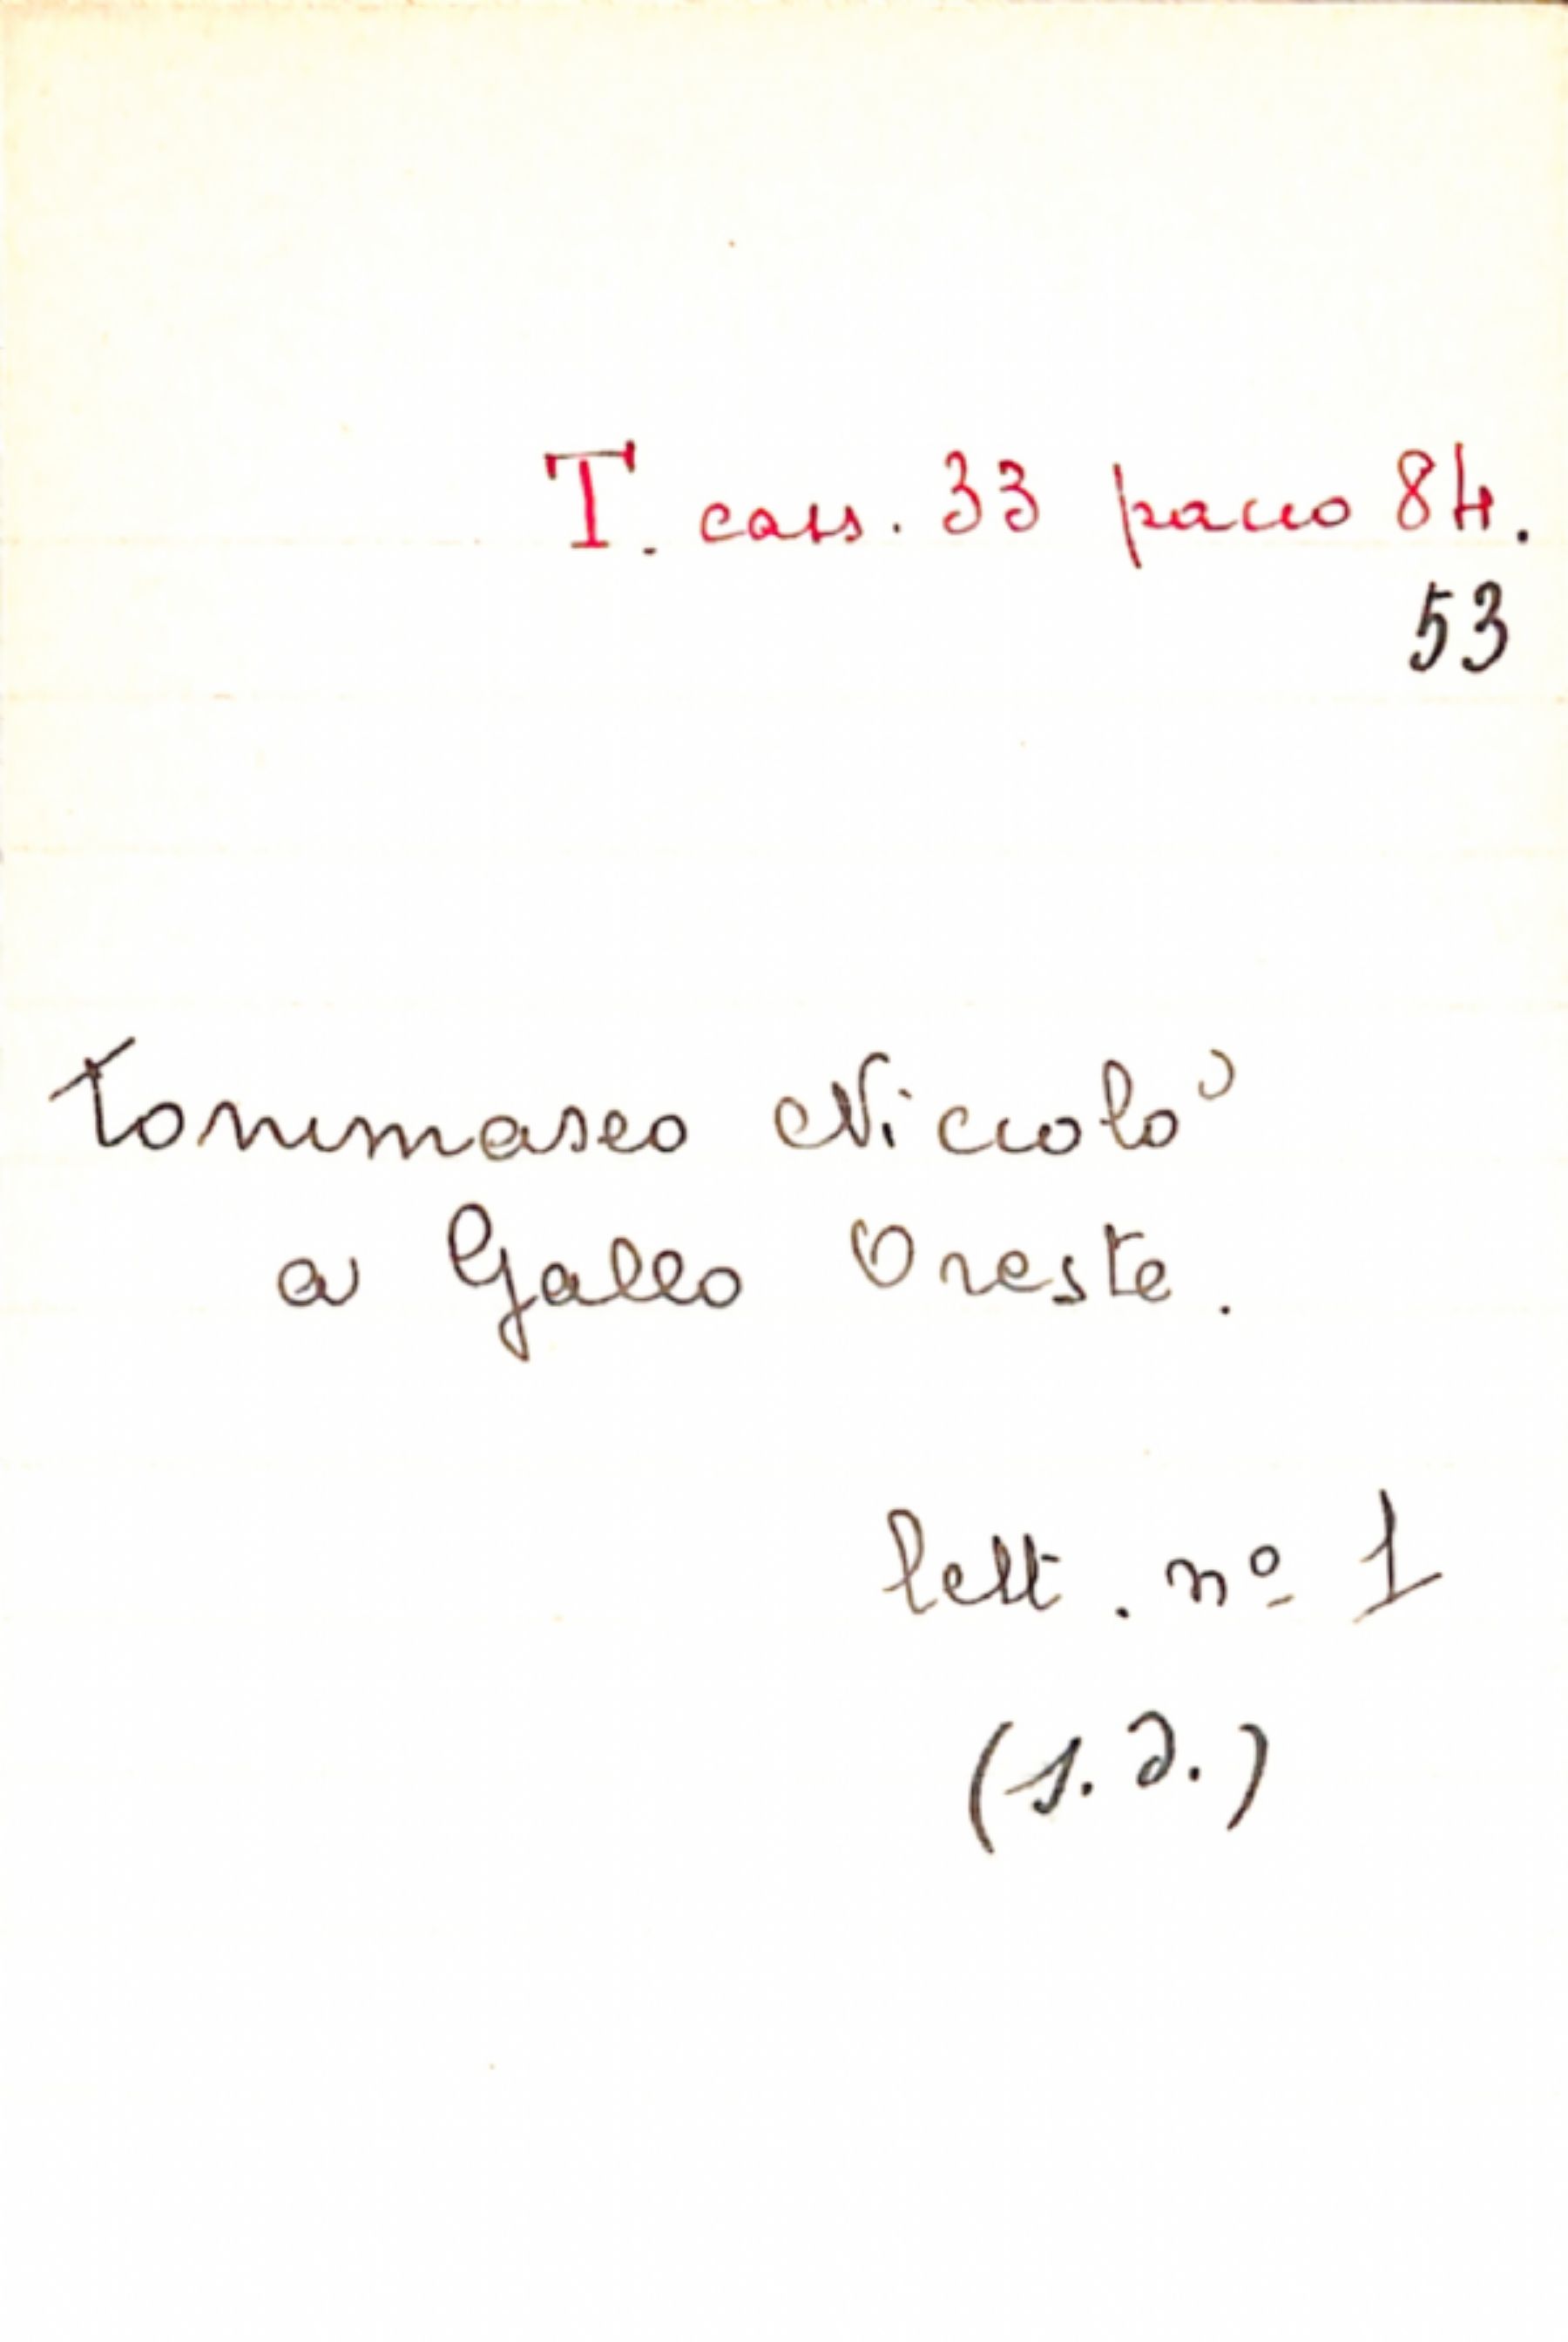 T. cass. 33 pacco 84.
53
Tommaseo Niccolò
a Gallo Oreste.
lett. nº 1
(s. d.)